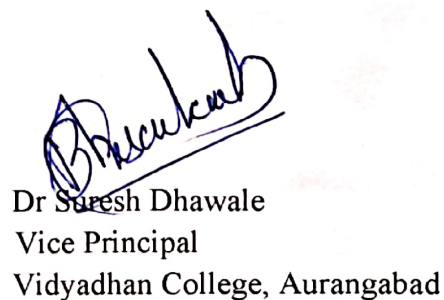 Dr Suresh Dhawale
Vice Principal
Vidyadhan College, Aurangabad